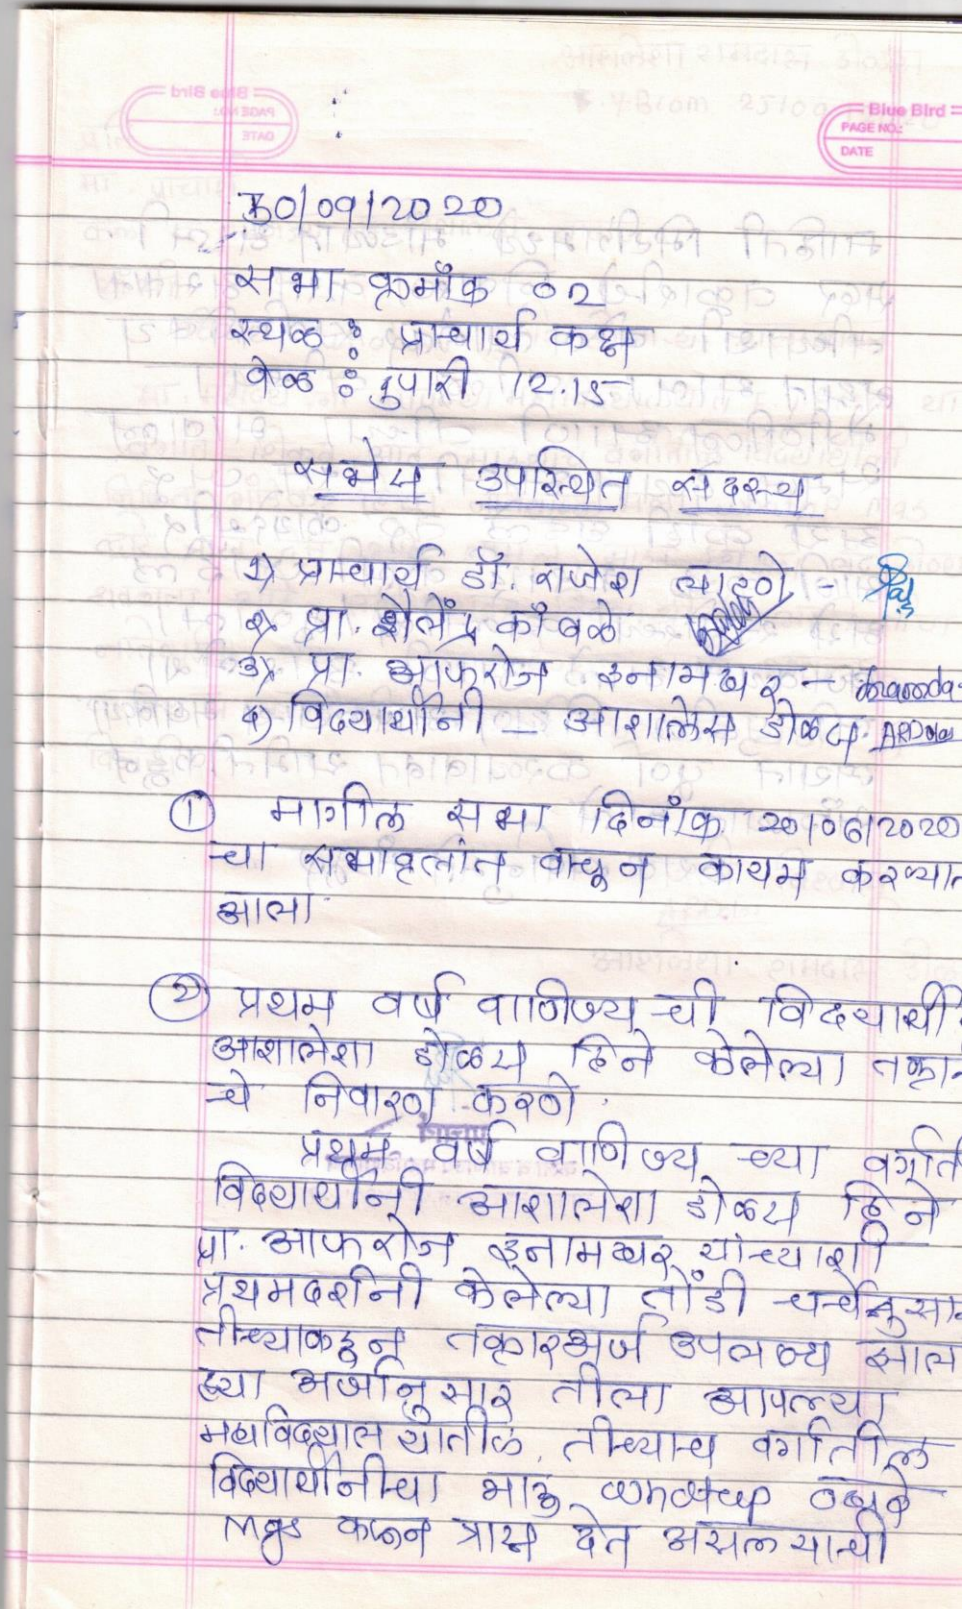 Blue Bird
PAGE NO.:
DATE
30/09/2020
सभा क्रमांक 02
स्थळ : प्राचार्य कक्ष
वेळ : दुपारी 12.15
सभेस उपस्थित सदस्य
१) प्राचार्य डॉ. राजेश लाहणे -
२) प्रा. शैलेंद्र कांबळे
३) प्रा. आफरोज इनामदार -
४) विद्यार्थीनी - आशालेस डोळस.
① मागील सभा दिनांक 20/06/2020
चा सभावृत्तांत वाचून कायम करण्यात
आला.
② प्रथम वर्ष वाणिज्य ची विद्यार्थी
आशालेशा डोळस हिने केलेल्या
चे निवारण करणे.
प्रथम वर्ष वाणिज्य च्या
विद्यार्थीनी आशालेशा डोळस हिने
प्रा. आफरोज इनामदार यांच्याशी
प्रथमदर्शनी केलेल्या तोंडी
तीच्याकडून तक्रारअर्ज उपलब्ध झाला
ह्या अर्जानुसार तीला आपल्या
महाविद्यालयातील, तीच्याच वर्गातील
विद्यार्थीनीचा भाऊ whatsup
Msgs करून त्रास देत असल्याची